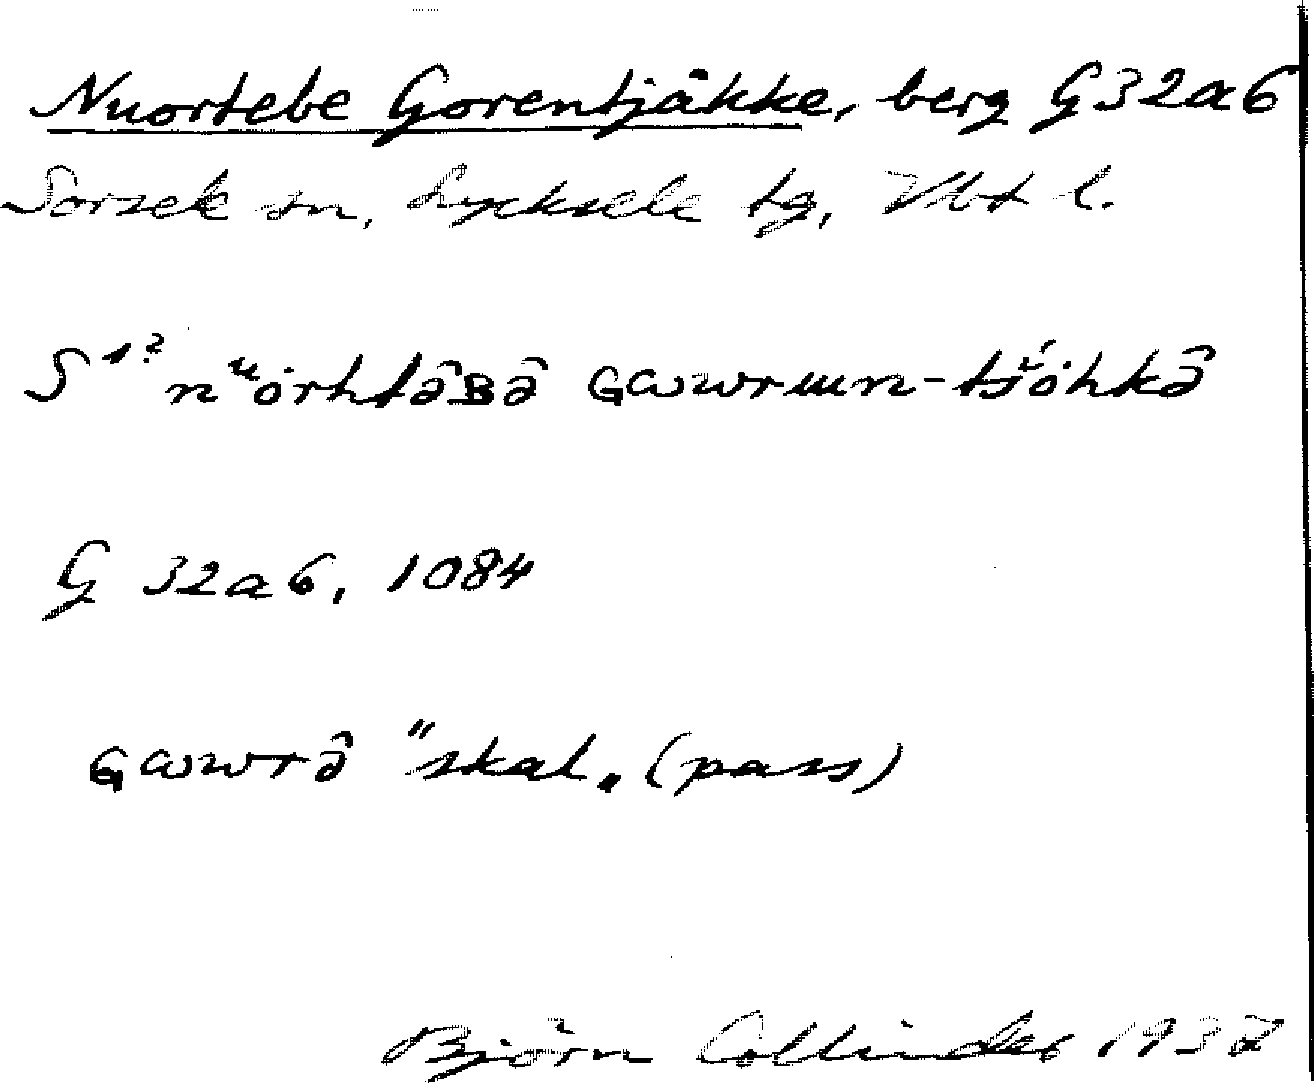 Nuortebe Gorentjåkke, berg G32a6
Sorsele sn, Lycksele tg, Vbt l.
S¹? nᵘȯrhtâʙâ ɢɷwrɯn-tšᵘ́ȯhkâ
G 32a6, 1084
ɢɷwrâ "skal„ (pass)
Björn Collinder 1937